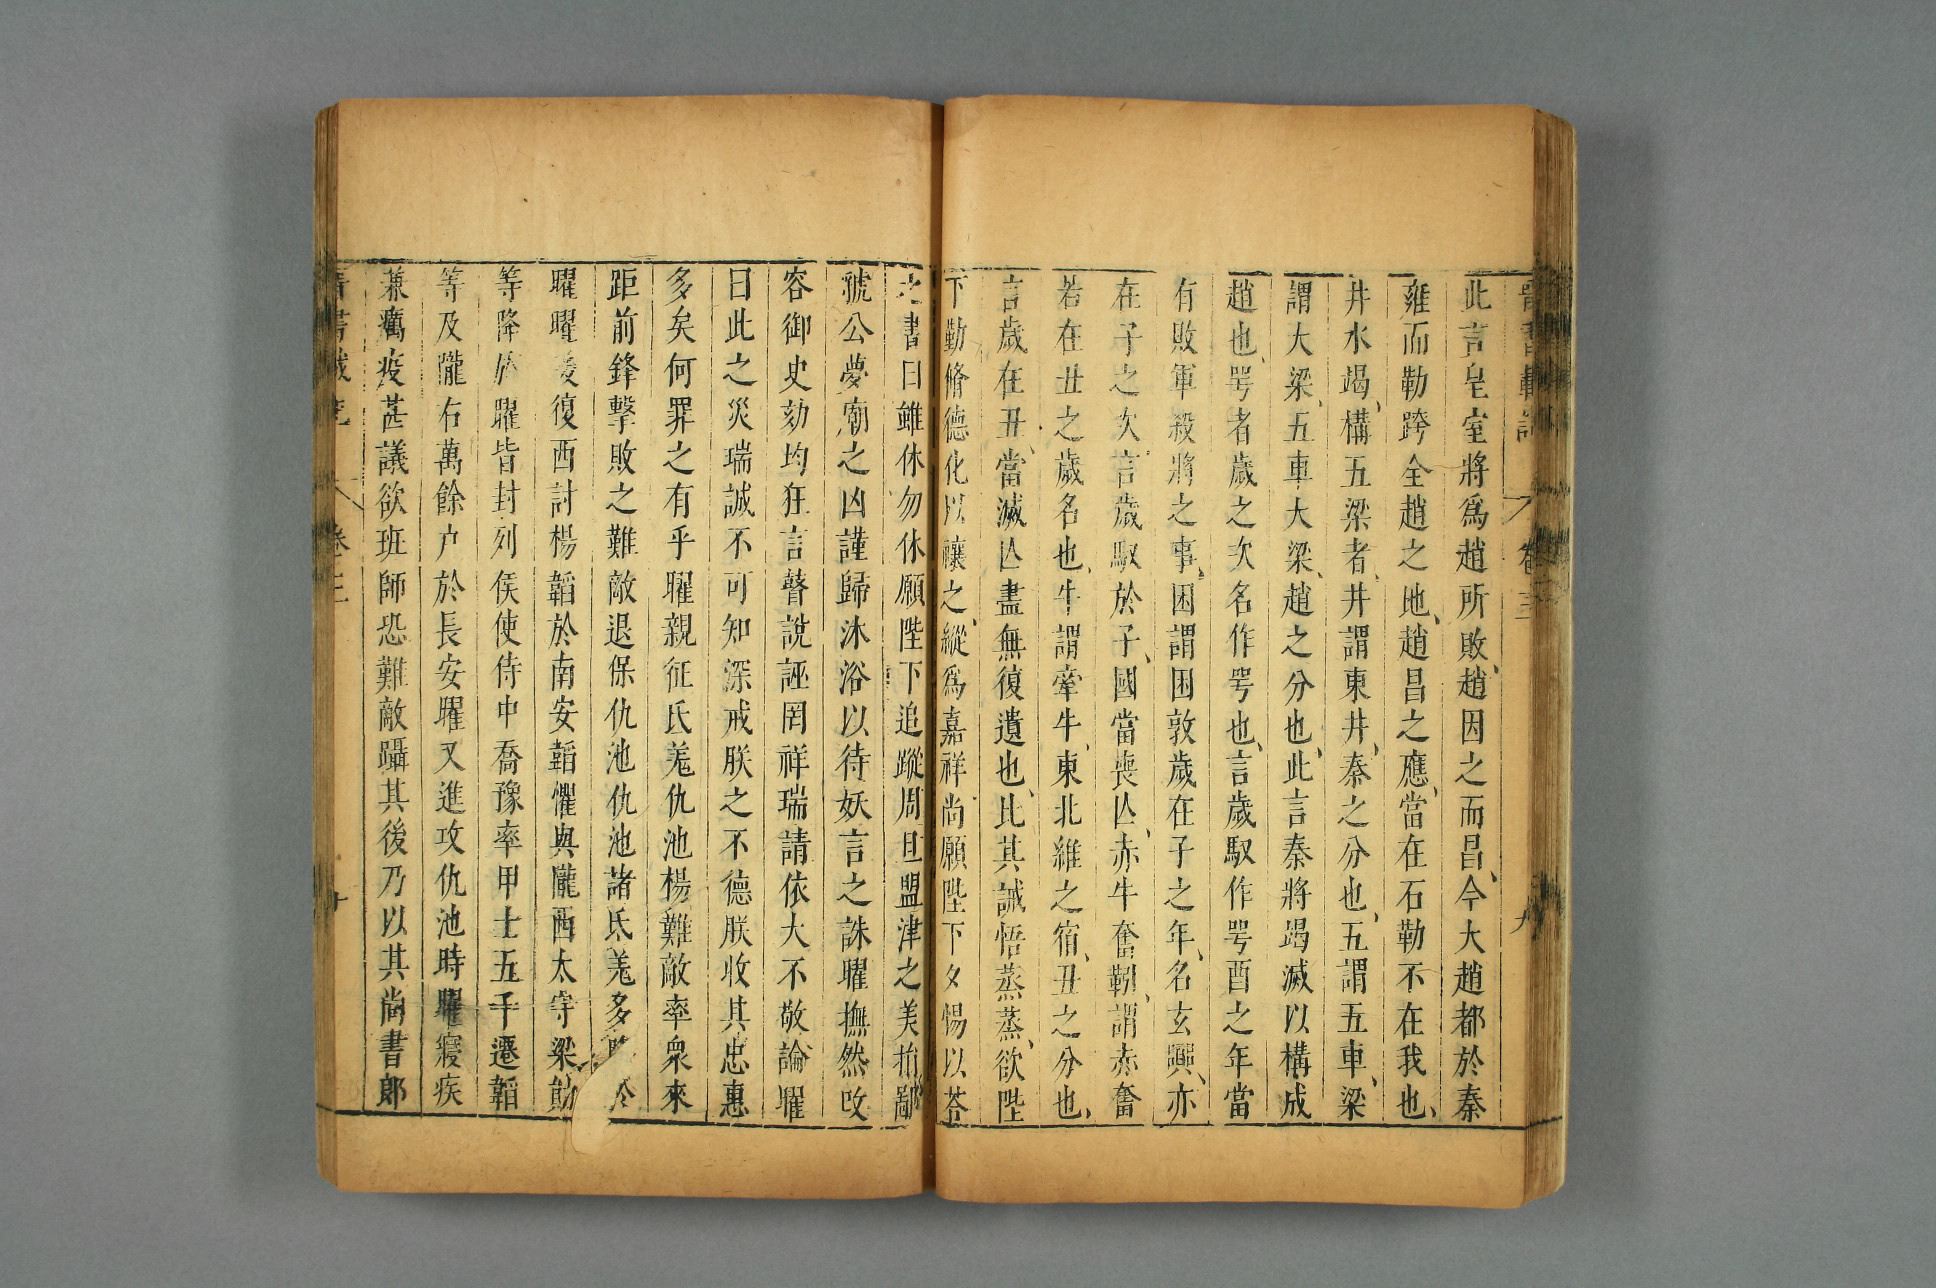 晉書載記 卷三 九
此言皇室將爲趙所敗趙因之而昌今大趙都於秦
雍而勒跨全趙之地趙昌之應當在石勒不在我也
井水竭構五梁者井謂東井秦之分也五謂五車梁
謂大梁五車大梁趙之分也此言秦將竭滅以構成
趙也咢者歲之次名作咢也言歲馭作咢酉之年當
有敗軍殺將之事困謂困敦歲在子之年名玄囂亦
在子之次言歲馭於子國當喪亾赤牛奮靷謂赤奮
若在丑之歲名也牛謂牽牛東北維之宿丑之分也
言歲在丑當滅亾盡無復遺也比其誠悟蒸蒸欲陛
下勤脩德化以禳之縱爲嘉祥尚願陛下夕惕以荅
之書曰雖休勿休願陛下追蹤周旦盟津之美捐鄙
虢公夢廟之凶謹歸沐浴以待妖言之誅曜撫然改
容御史劾均狂言瞽說誣罔祥瑞請依大不敬論曜
曰此之災瑞誠不可知深戒朕之不德朕收其忠惠
多矣何罪之有乎曜親征氐羗仇池楊難敵率衆來
距前鋒擊敗之難敵退保仇池仇池諸氐羗多 於
曜曜 復西討楊韜於南安韜懼與隴西太守梁勛
等降於曜皆封列侯使侍中喬豫率甲士五千遷韜
等及隴右萬餘户於長安曜又進攻仇池時曜寢疾
兼癘疫甚議欲班師恐難敵躡其後乃以其尚書郎
晉書載記 卷三 十